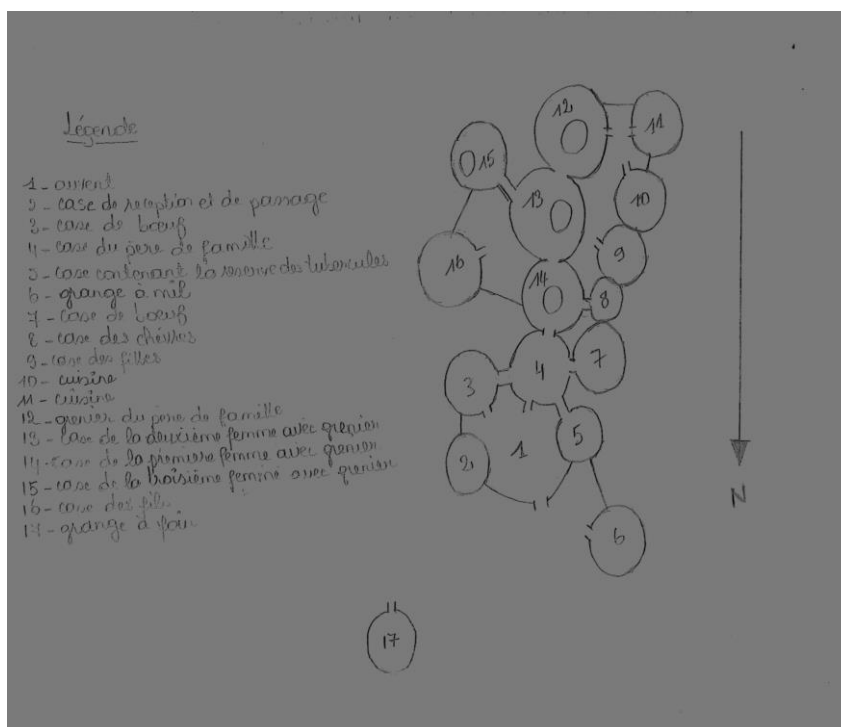 Légende
1 - auvent
2 - case de reception et de passage
3 - case de bœuf
4 - case du pere de famille
5 - case contenant la reserve des tubercules
6 - grange à mil
7 - case de bœuf
8 - case des chèvres
9 - case des filles
10 - cuisine
11 - cuisine
12 - grenier du pere de famille
13 - case de la deuxième femme avec grenier
14 - case de la premiere femme avec grenier
15 - case de la troisième femme avec grenier
16 - case des fils
17 - grange à foin
12
11
15
10
13
9
16
14
8
7
4
3
5
1
2
N
6
17